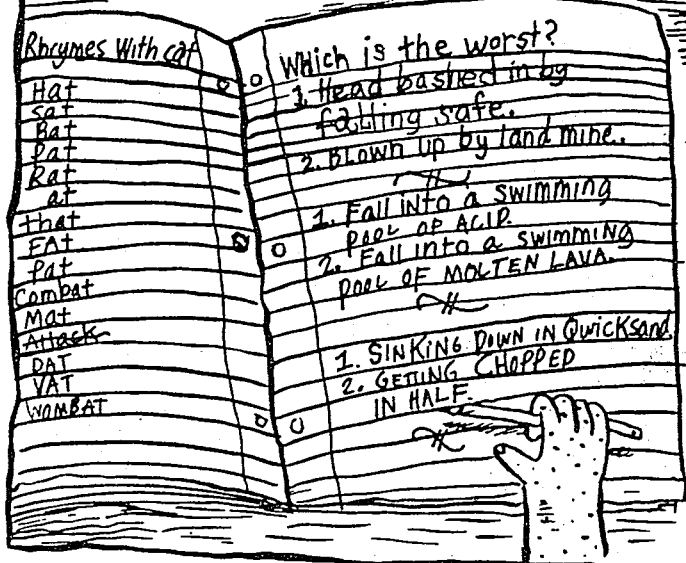 Rhcymes With cat
Hat
sat
Bat
Pat
Rat
at
that
FAt
Pat
Combat
Mat
Attack
DAT
VAT
WOMBAT
Which is the worst?
1. Head bashed in by
falling safe.
2. Blown up by land mine.
1. Fall into a swimming
pool OF ACID.
2. Fall into a swimming
pool OF MOLTEN LAVA.
1. SINKING DOWN IN Qwicksand
2. GETTING CHOPPED
IN HALF.